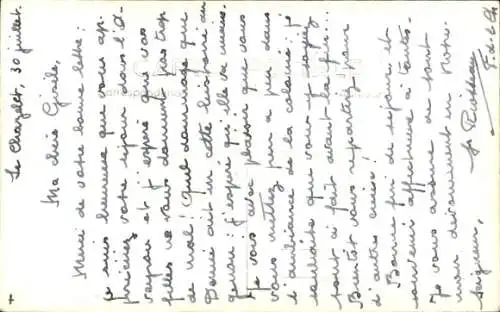 +
Le Chazelet, 30 juillet.
Ma chère Gisèle,
Merci de votre bonne lettre:
je suis heureuse que vous ap-
préciez votre séjour sous l'A-
veyron et j'espère que vos
filles ne vous donnent pas trop
de mal! Quel dommage que
Denise ait un cette
j'espère qu'elle va mieux.
Je vois avec plaisir que vous
vous mettez peu à peu dans
l'ambiance de la colonie: je
souhaite que vous y soyez
tout à fait avant la fin...
Bientôt vous repartirez pour
d'autres cieux!
Bonne fin de séjour et
souvenir affectueux à toutes.
Je vous assure de tout
mon dévouement en Notre-
Seigneur,